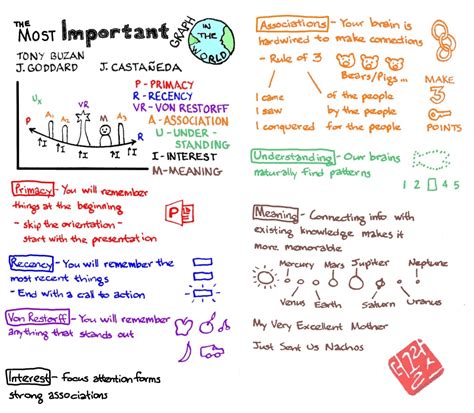 THE
MOST Important
GRAPH
IN THE
WORLD
TONY BUZAN
J. GODDARD J. CASTAÑEDA
P - PRIMACY
R - RECENCY
VR - VON RESTORFF
A - ASSOCIATION
U - UNDER-
STANDING
I - INTEREST
M - MEANING
Ux
VR
P A1 A2 M A3
R
I I I I
Primacy - You will remember
things at the beginning
- skip the orientation -
start with the presentation
P
Recency - You will remember the
most recent things
- End with a call to action
Von Restorff - You will remember
anything that stands out
Interest - focus attention forms
strong associations
Associations - Your brain is
hardwired to make connections
- Rule of 3
Bears/Pigs...
I came of the people
I saw by the people
I conquered for the people
MAKE
3
POINTS
Understanding - Our brains
naturally find patterns
1 2 4 5
Meaning - Connecting info with
existing knowledge makes it
more memorable
Mercury Mars Jupiter Neptune
Venus Earth Saturn Uranus
My Very Excellent Mother
Just Sent Us Nachos